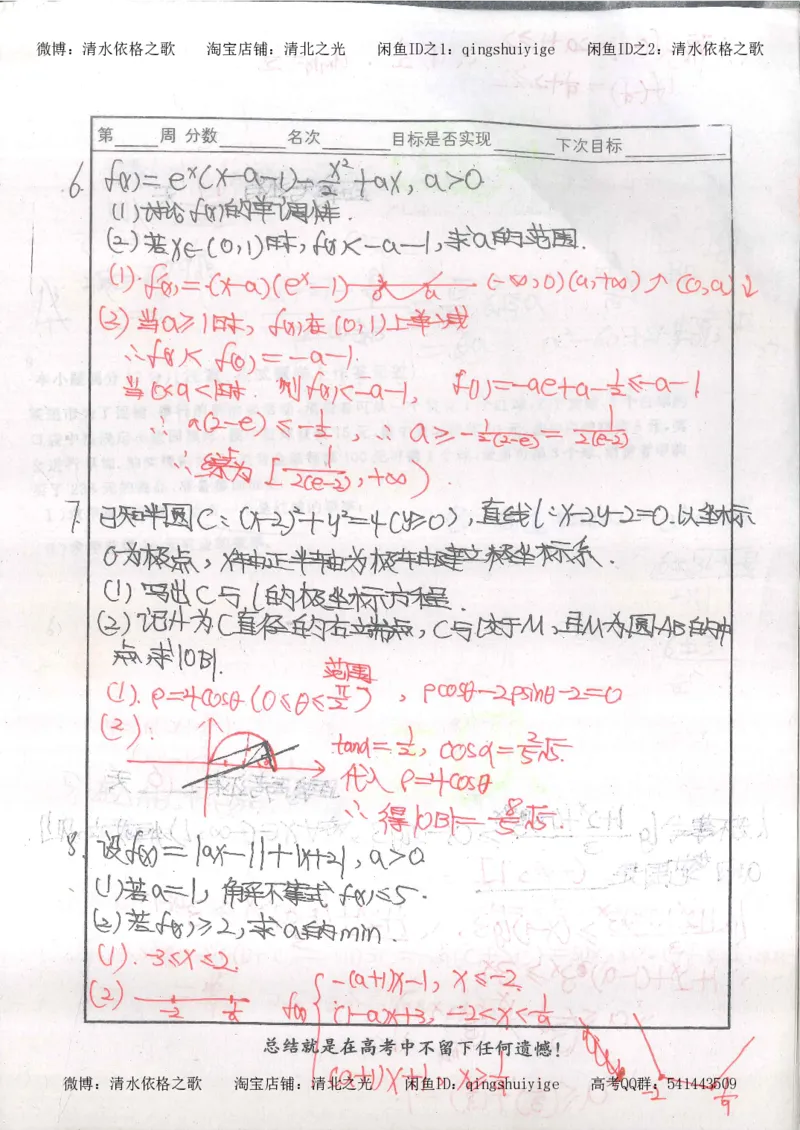 微博：清水依格之歌 淘宝店铺：清北之光 闲鱼ID之1：qingshuiyige 闲鱼ID之2：清水依格之歌
第____周 分数______ 名次______ 目标是否实现______ 下次目标________
6. f(x)=eˣ(x-a-1)-x²/2+ax, a>0
(1)讨论f(x)的单调性.
(2)若x∈(0,1)时, f(x)<-a-1, 求a的范围.
(1). f(x)=(x-a)(eˣ-1) 0 a (-∞,0)(a,+∞)↗ (0,a)↓
(3)当a≥1时, f(x)在(0,1)上单减
∴f(x)<f(0)=-a-1.
当0<a<1时. 则f(x)<-a-1, f(1)=-ae+a-1/2≤-a-1
∴a(2-e)≤-1/2, ∴a≥-1/2(2-e)=1/2(e-2)
∴综为[1/2(e-2),+∞)
7. 已知半圆C:(x-2)²+y²=4(y≥0), 直线l:x-2y-2=0.以坐标
O为极点, x轴正半轴为极轴建立极坐标系.
(1)写出C与l的极坐标方程.
(2)记A为C直径的右端点, C与l交于M, 且M为圆AB的中
点,求|OB|.
范围
(1). ρ=4cosθ(0≤θ≤π/2), ρcosθ-2ρsinθ-2=0
(2):
tanα=1/2, cosα=2/5√5.
代入ρ=4cosθ
∴得|OB|=8/5√5.
8. 设f(x)=|ax-1|+|x+2|, a>0
(1)若a=1, 解不等式f(x)≤5.
(2)若f(x)≥2, 求a的min.
(1). -3≤x≤2.
(2) -2 1/a f(x){ -(a+1)x-1, x≤-2.
(1-a)x+3, -2<x<1/a
总结就是在高考中不留下任何遗憾!
(a+1)x+1, x≥1/a
-2 1/a
微博：清水依格之歌 淘宝店铺：清北之光 闲鱼ID：qingshuiyige 高考QQ群：541443509